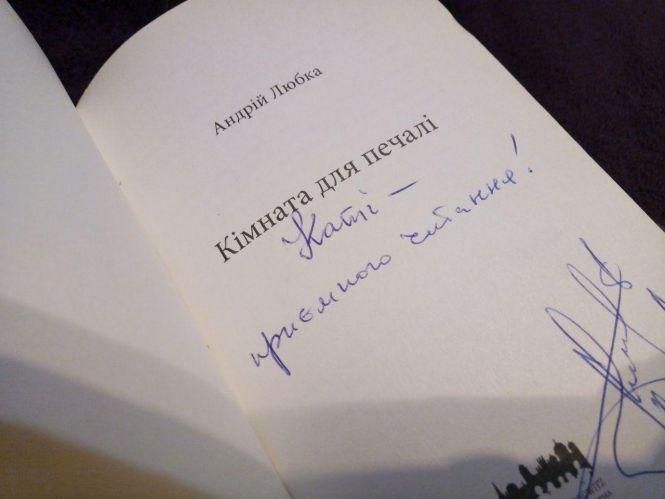 Андрій Любка
Кімната для печалі
Каті –
приємного читання!